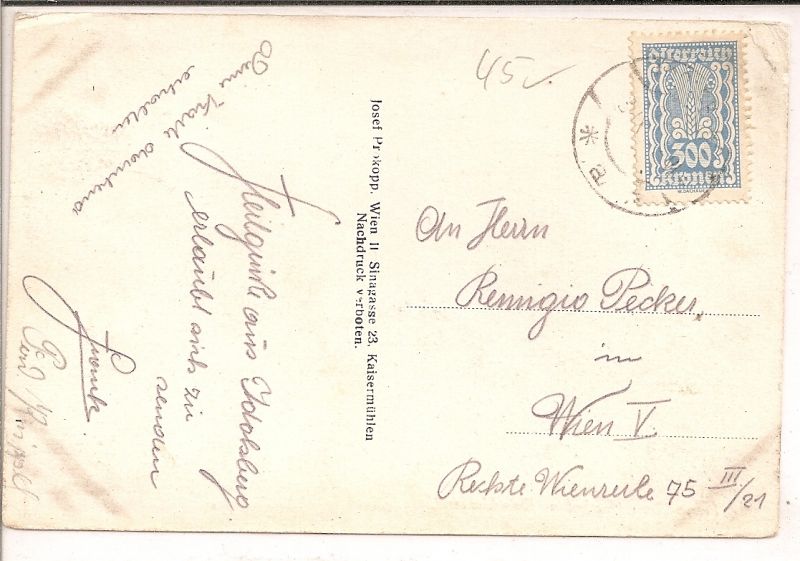 45
österreich
300
Kronen
An Herrn
Remigio Pecker
in
Wien V.
Rechte Wienzeile 75 III/21
Josef Prokopp, Wien II Sinagasse 23, Kaisermühlen
Nachdruck verboten.
aus Idolsberg
erlaubt sich zu
senden
Karte dankend
erhalten